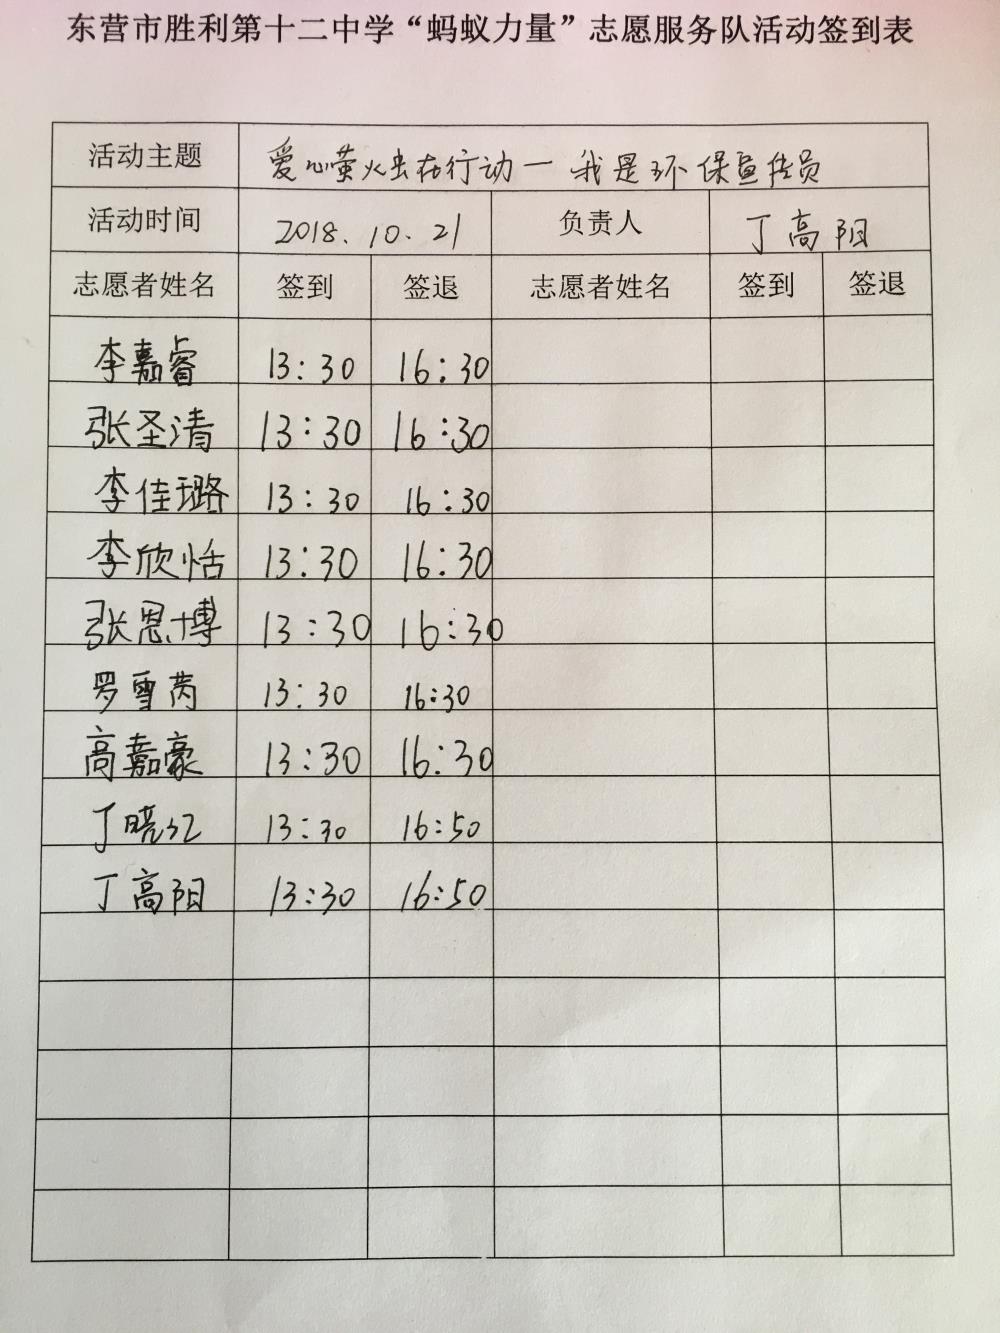 东营市胜利第十二中学“蚂蚁力量”志愿服务队活动签到表
活动主题 爱心萤火虫在行动一我是环保宣传员
活动时间 2018.10.21 负责人 丁高阳
志愿者姓名 签到 签退 志愿者姓名 签到 签退
李嘉睿 13:30 16:30
张圣清 13:30 16:30
李佳璐 13:30 16:30
李欣恬 13:30 16:30
张恩博 13:30 16:30
罗雪芮 13:30 16:30
高嘉豪 13:30 16:30
丁晓红 13:30 16:50
丁高阳 13:30 16:50